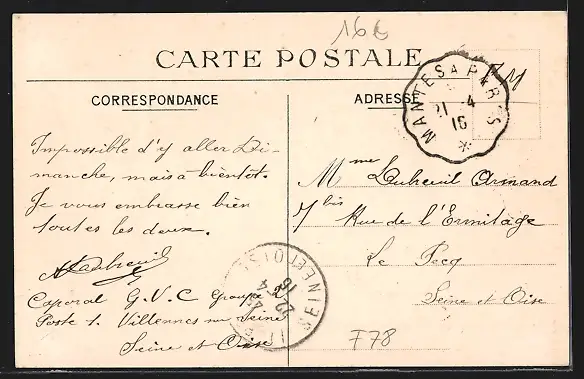 16€
CARTE POSTALE
CORRESPONDANCE
ADRESSE
F M
MANTES A PARIS
21 - 4
16
*
Impossible d'y aller Di-
manche, mais à bientot.
Je vous embrasse bien
toutes les deux.
Caporal G.V.C Groupe 2
Poste 1. Villennes sur Seine
Seine et Oise
Mme Lubreuil Armand
7 bis Rue de l'Ermitage
Le Pecq
Seine et Oise
SEINE ET OISE
22 - 4
16
F78